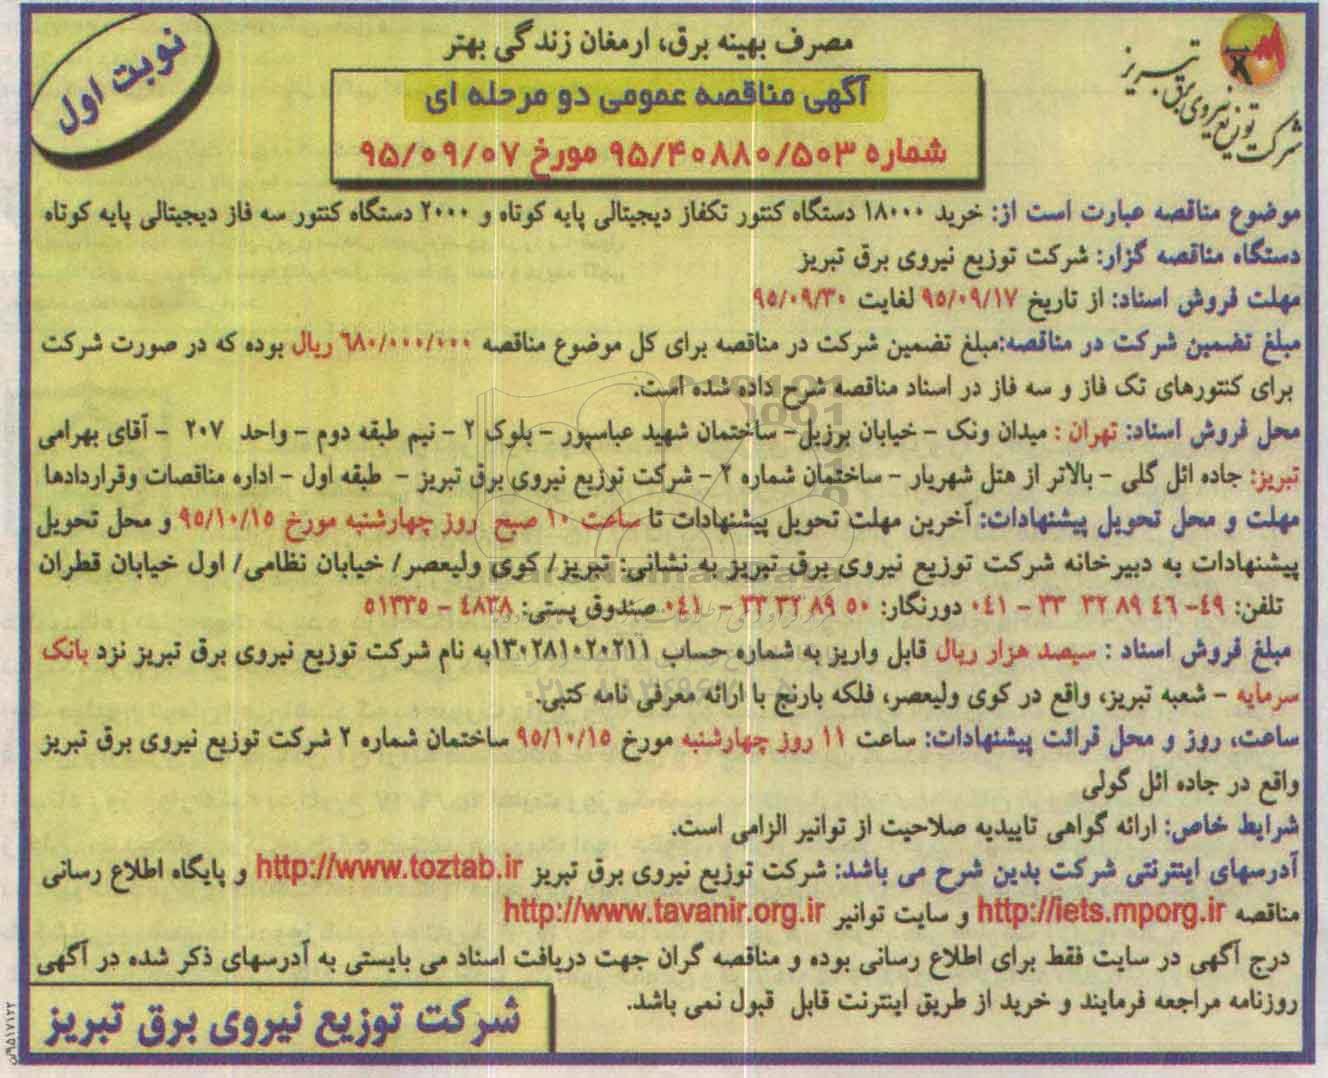 مصرف بهینه برق، ارمغان زندگی بهتر
نوبت اول
شرکت توزیع نیروی برق تبریز
آگهی مناقصه عمومی دو مرحله ای
شماره ۹۵/۴۰۸۸۰/۵۰۳ مورخ ۹۵/۰۹/۰۷
موضوع مناقصه عبارت است از: خرید ۱۸۰۰۰ دستگاه کنتور تکفاز دیجیتالی پایه کوتاه و ۲۰۰۰ دستگاه کنتور سه فاز دیجیتالی پایه کوتاه
دستگاه مناقصه گزار: شرکت توزیع نیروی برق تبریز
مهلت فروش اسناد: از تاریخ ۹۵/۰۹/۱۷ لغایت ۹۵/۰۹/۳۰
مبلغ تضمین شرکت در مناقصه:مبلغ تضمین شرکت در مناقصه برای کل موضوع مناقصه ۶۸۰/۰۰۰/۰۰۰ ریال بوده که در صورت شرکت
برای کنتورهای تک فاز و سه فاز در اسناد مناقصه شرح داده شده است.
محل فروش اسناد: تهران : میدان ونک – خیابان برزیل– ساختمان شهید عباسپور – بلوک ۲ – نیم طبقه دوم – واحد ۲۰۷ – آقای بهرامی
تبریز: جاده ائل گلی – بالاتر از هتل شهریار – ساختمان شماره ۲ – شرکت توزیع نیروی برق تبریز – طبقه اول – اداره مناقصات وقراردادها
مهلت و محل تحویل پیشنهادات: آخرین مهلت تحویل پیشنهادات تا ساعت ۱۰ صبح روز چهارشنبه مورخ ۹۵/۱۰/۱۵ و محل تحویل
پیشنهادات به دبیرخانه شرکت توزیع نیروی برق تبریز به نشانی: تبریز/ کوی ولیعصر/ خیابان نظامی/ اول خیابان قطران
تلفن: ۴۹- ۴۶ ۸۹ ۳۲ ۳۳ – ۰۴۱ دورنگار: ۵۰ ۸۹ ۳۲ ۳۳ – ۰۴۱ صندوق پستی: ۴۸۳۸ – ۵۱۳۳۵
مبلغ فروش اسناد : سیصد هزار ریال قابل واریز به شماره حساب ۱۳۰۲۸۱۰۲۰۲۱۱به نام شرکت توزیع نیروی برق تبریز نزد بانک
سرمایه – شعبه تبریز، واقع در کوی ولیعصر، فلکه بارنج با ارائه معرفی نامه کتبی.
ساعت، روز و محل قرائت پیشنهادات: ساعت ۱۱ روز چهارشنبه مورخ ۹۵/۱۰/۱۵ ساختمان شماره ۲ شرکت توزیع نیروی برق تبریز
واقع در جاده ائل گولی
شرایط خاص: ارائه گواهی تاییدیه صلاحیت از توانیر الزامی است.
آدرسهای اینترنتی شرکت بدین شرح می باشد: شرکت توزیع نیروی برق تبریز http://www.toztab.ir و پایگاه اطلاع رسانی
مناقصه http://iets.mporg.ir و سایت توانیر http://www.tavanir.org.ir
درج آگهی در سایت فقط برای اطلاع رسانی بوده و مناقصه گران جهت دریافت اسناد می بایستی به آدرسهای ذکر شده در آگهی
روزنامه مراجعه فرمایند و خرید از طریق اینترنت قابل قبول نمی باشد.
شرکت توزیع نیروی برق تبریز